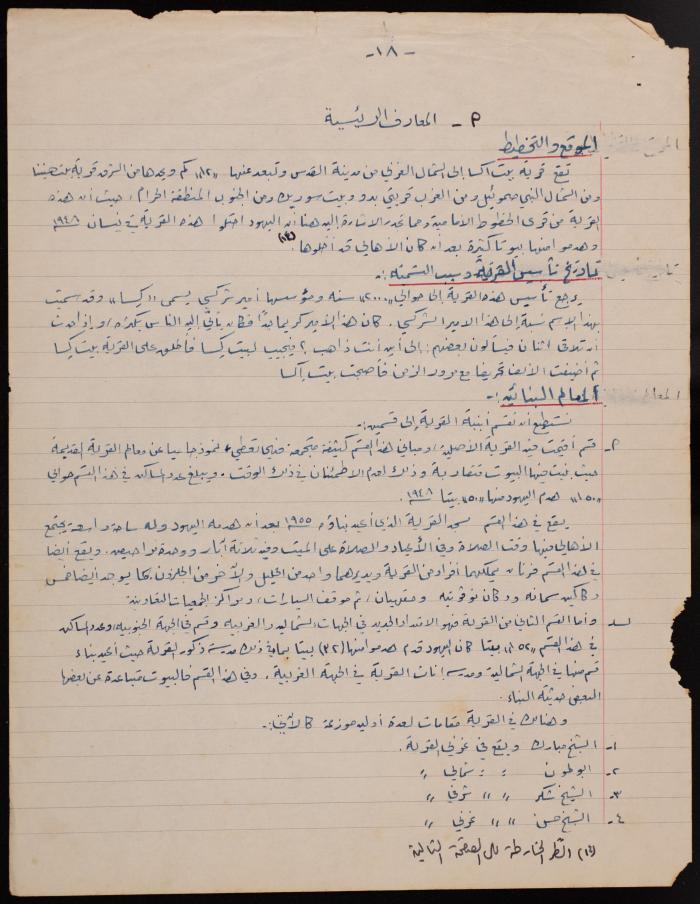 - ١٨ -
٩ - المعارف الرئيسية
الموقع والتخطيط
تقع قرية بيت اكسا إلى الشمال الغربي من مدينة القدس وتبعد عنها "١٢" كم ويحدها من الشرق قرية بيت حنينا
ومن الشمال النبي صموئيل ومن الغرب قريتي بدو وبيت سوريك ومن الجنوب المنطقة الحرام، حيث أن هذه
القرية من قرى الخطوط الأمامية ومما تجدر الإشارة إليه هنا أن اليهود احتلوا هذه القرية في نيسان ١٩٤٨
وهدموا منها بيوتا كثيرة بعد أن كان الأهالي قد أخلوها.
تاريخ تأسيس القرية وسبب التسمية :-
يرجع تأسيس هذه القرية إلى حوالي "٢٠٠٠" سنه ومؤسسها أمير شركسي يسمى "كسا" وقد سميت
بهذا الإسم نسبة إلى هذا الامير الشركسي. كان هذا الأمير كريما جدا فكان يأتي إليه الناس بكثره، وإذا حدث
أن تلاقى اثنان فيسألون بعضهم: إلى أين أنت ذاهب ؟ فيجيب لبيت كسا فأطلق على القرية بيت كسا
ثم أضيفت الألف تحريفا مع مرور الزمن فأصبحت بيت إكسا
المعالم البنائية :-
نستطيع أن نقسم أبنية القرية إلى قسمين:-
٩- قسم أقيمت فيه القرية الأصلية، ومباني هذا القسم كثيفة متجمعة نموذجا حيا عن معالم القرية القديمة
حيث بنيت فيها البيوت متقاربة وذلك لعدم الاطمئنان في ذلك الوقت. ويبلغ عدد المساكن في هذا القسم حوالي
"١٥٠" هدم اليهود منها "٥٠" بيتا ١٩٤٨.
يقع في هذا القسم مسجد القرية الذي أعيد بناؤه ١٩٥٥ بعد أن هدمه اليهود وله ساحة واسعة يجتمع
الأهالي فيها وقت الصلاة وفي الأعياد والصلاة على الميت وفيه ثلاثة آبار ووحدة مراحيض. ويقع أيضا
في هذا القسم فرنان يملكهما أفراد من القرية ويديرهما واحد من الخليل والآخر من الجلزون، كما يوجد أيضا خمس
دكاكين سمانه ودكان نوفوتيه ومقهيان، ثم موقف السيارات، ومراكز الجمعيات التعاونية
ب- وأما القسم الثاني من القرية فهو الامتداد الجديد في الجهات الشمالية والغربية وقسم في الجهة الجنوبية، وعدد المساكن
في هذا القسم "١٥٢" بيتا كان اليهود قد هدموا منها (٣٢) بيتا بما في ذلك مدرسة ذكور القرية حيث أعيد بناء
قسم منها في الجهة الشمالية ومدرسة إناث القرية في الجهة الغربية. وفي هذا القسم فالبيوت متباعدة عن بعضها
البعض حديثة البناء.
وهنالك في القرية مقامات لعدة أولياء موزعة كالآتي:-
١- الشيخ مبارك ويقع في غربي القرية.
٢- ابو طون " " شمالي "
٣- الشيخ شكر " " شرقي "
٤- الشيخ حسن " " غربي "
(١٤) انظر الخارطة على الصفحة التالية